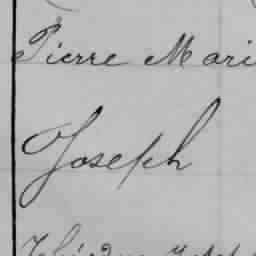 Pierre Mari
Joseph